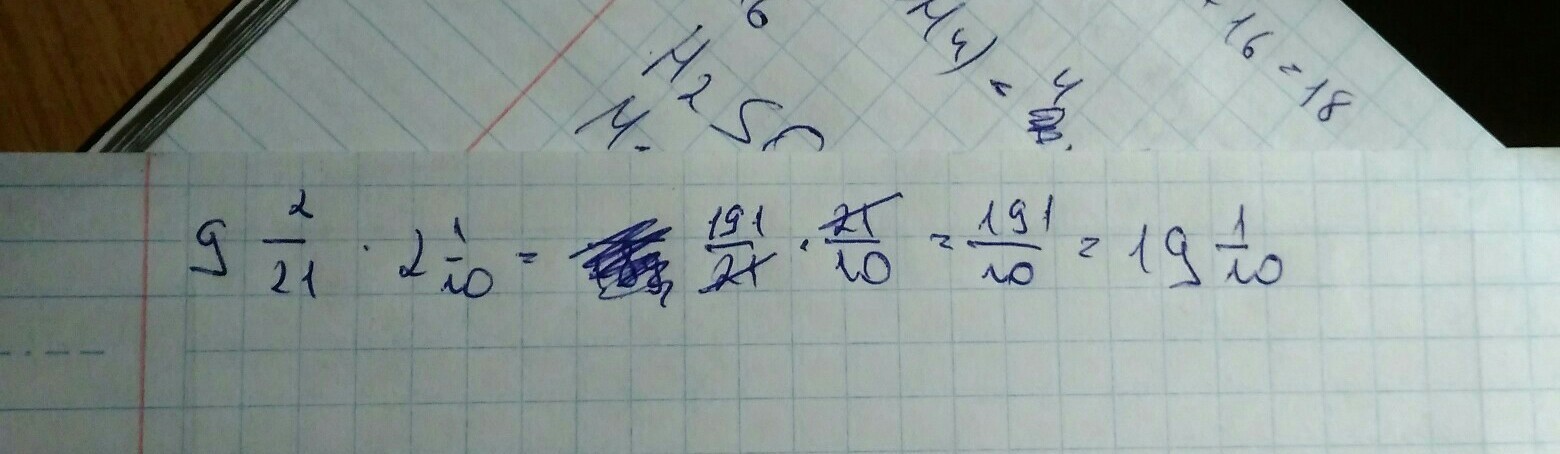 6
M(4) = 4
16 = 18
H2SO
M
9 2/21 · 2 1/10 = 191/21 · 21/10 = 191/10 = 19 1/10